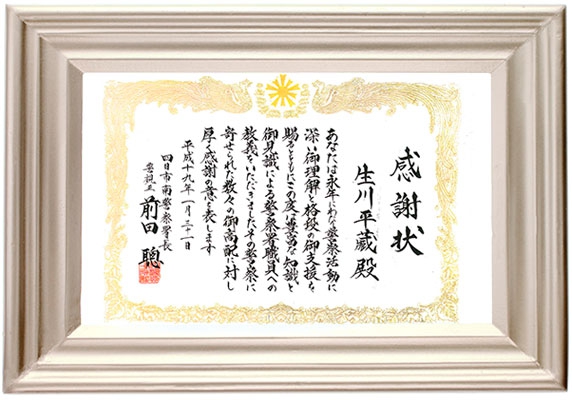 感謝状
生川平蔵殿
あなたは永年にわたり警察活動に
深い御理解と格段の御支援を
賜るとともにこの度は豊富な知識と
御見識による警察署職員への
教養をいただきました その警察に
寄せられた数々の御高配に対し
厚く感謝の意を表します
平成十九年一月三十一日
四日市南警察署長
警視正 前田聰